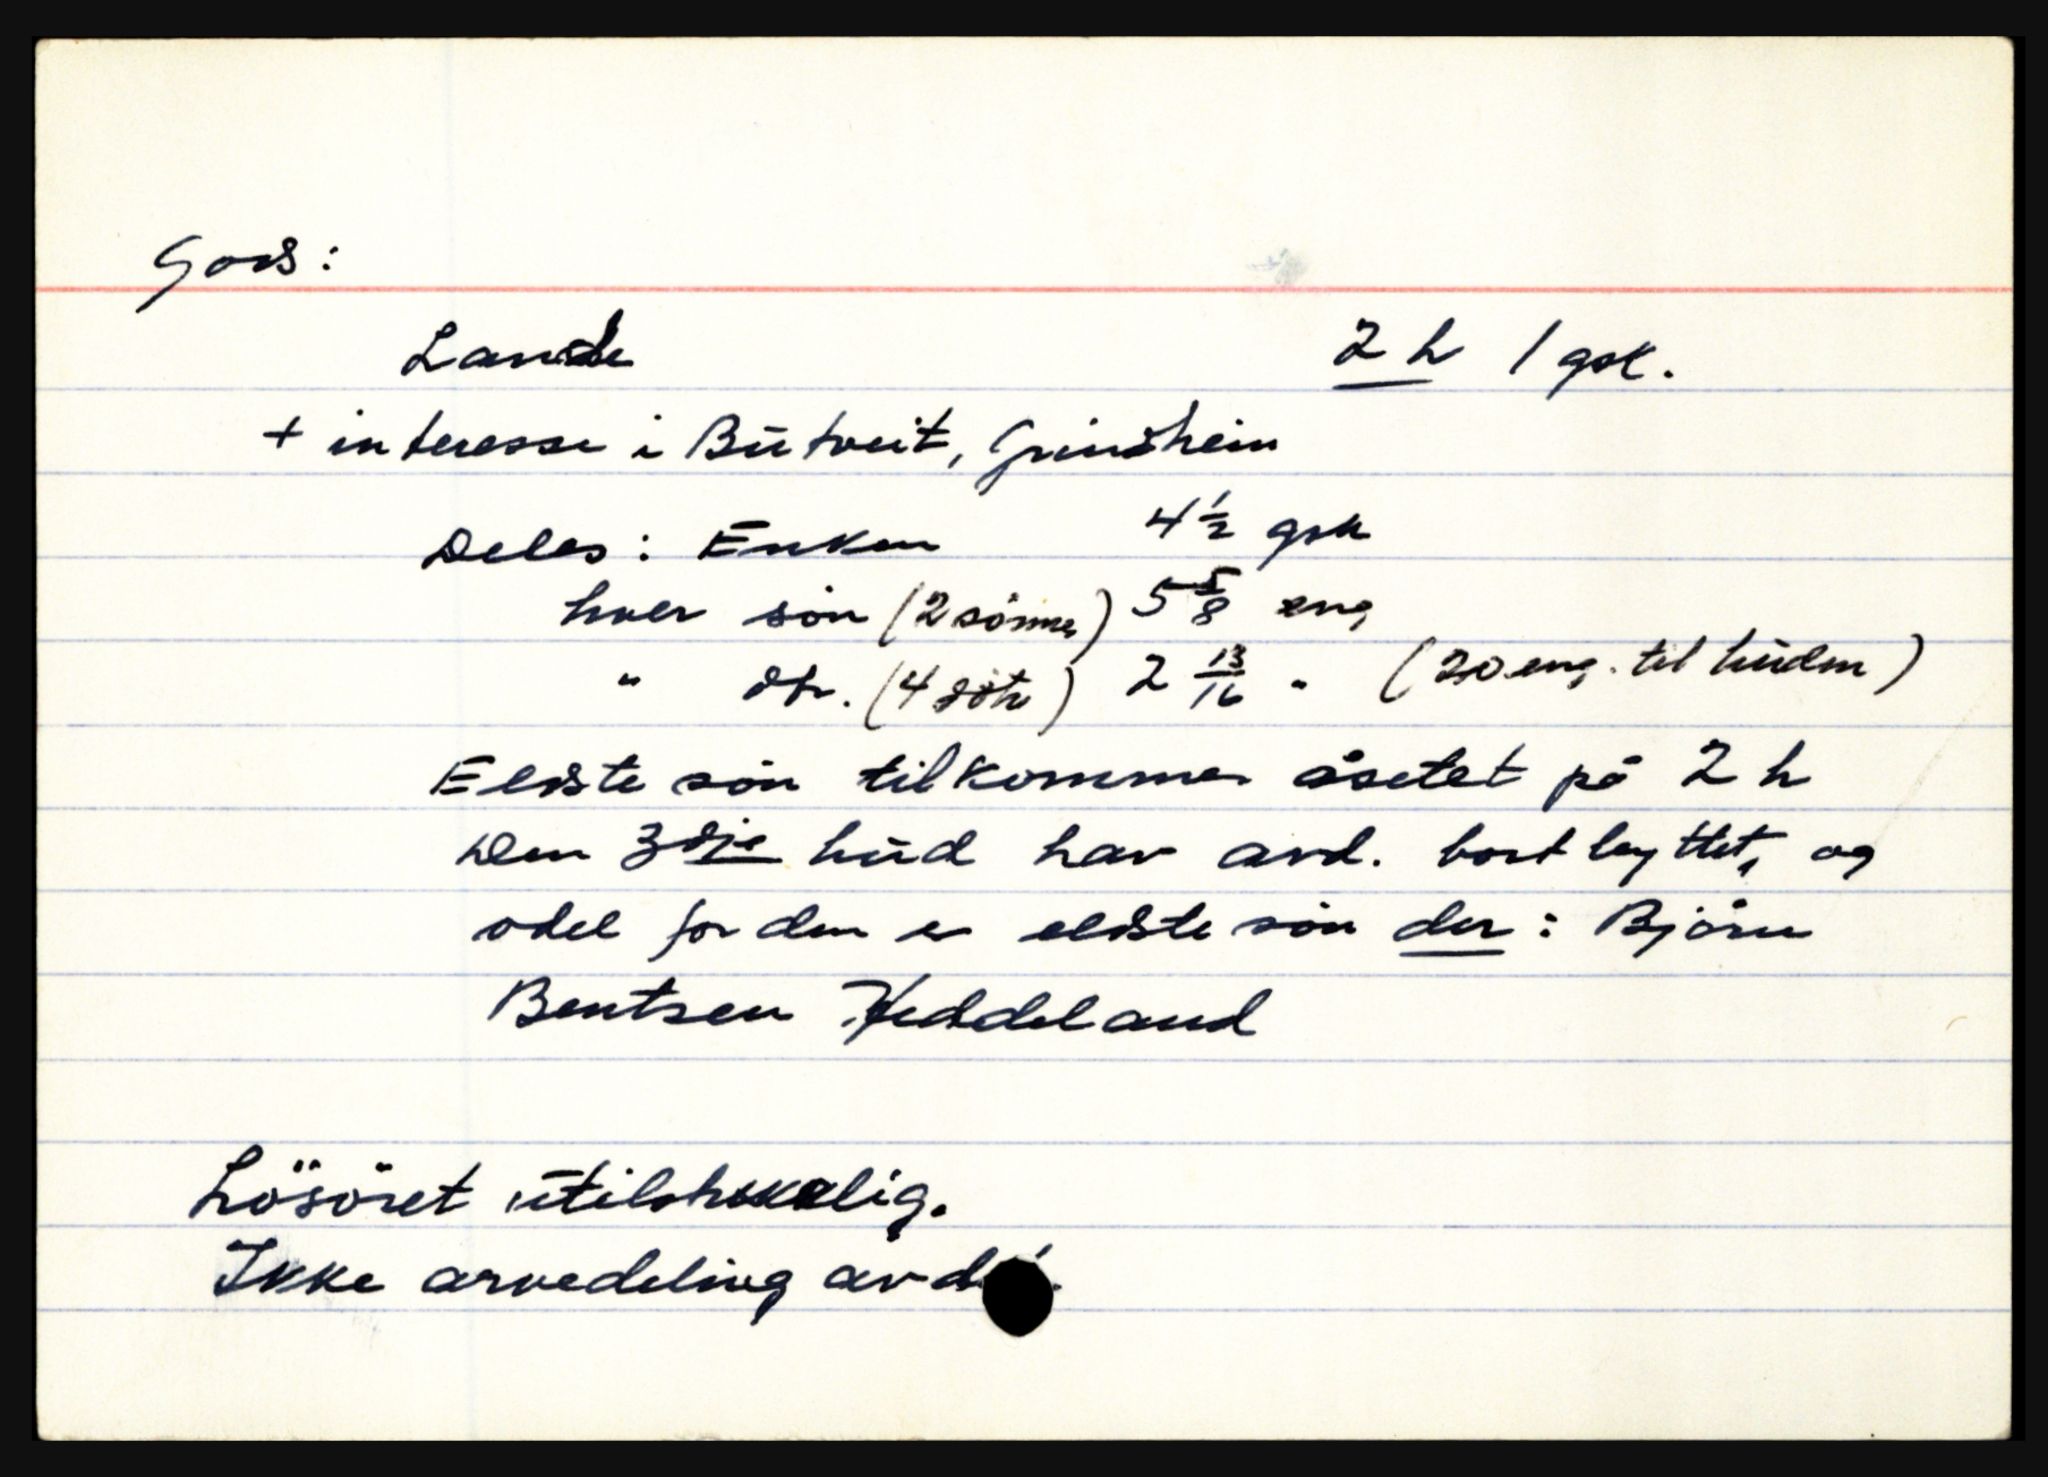 Gods:
Lande 2 h 1 gsk.
+ interesse i Butveit, Grindheim
Deles: Enken 4 1/2 gsk
hver sön (2 sönner) 5 5/8 eng
" dtr. (4 dötr) 2 13/16 " (20 eng. til huden)
Eldste sön tilkommer åsetet på 2 h
Den 3dje hud har avd. bortbyttet, og
odel for den er eldste sön der: Björn
Bentsen Heddeland
Lösöret utilstrekkelig.
Ikke arvedeling